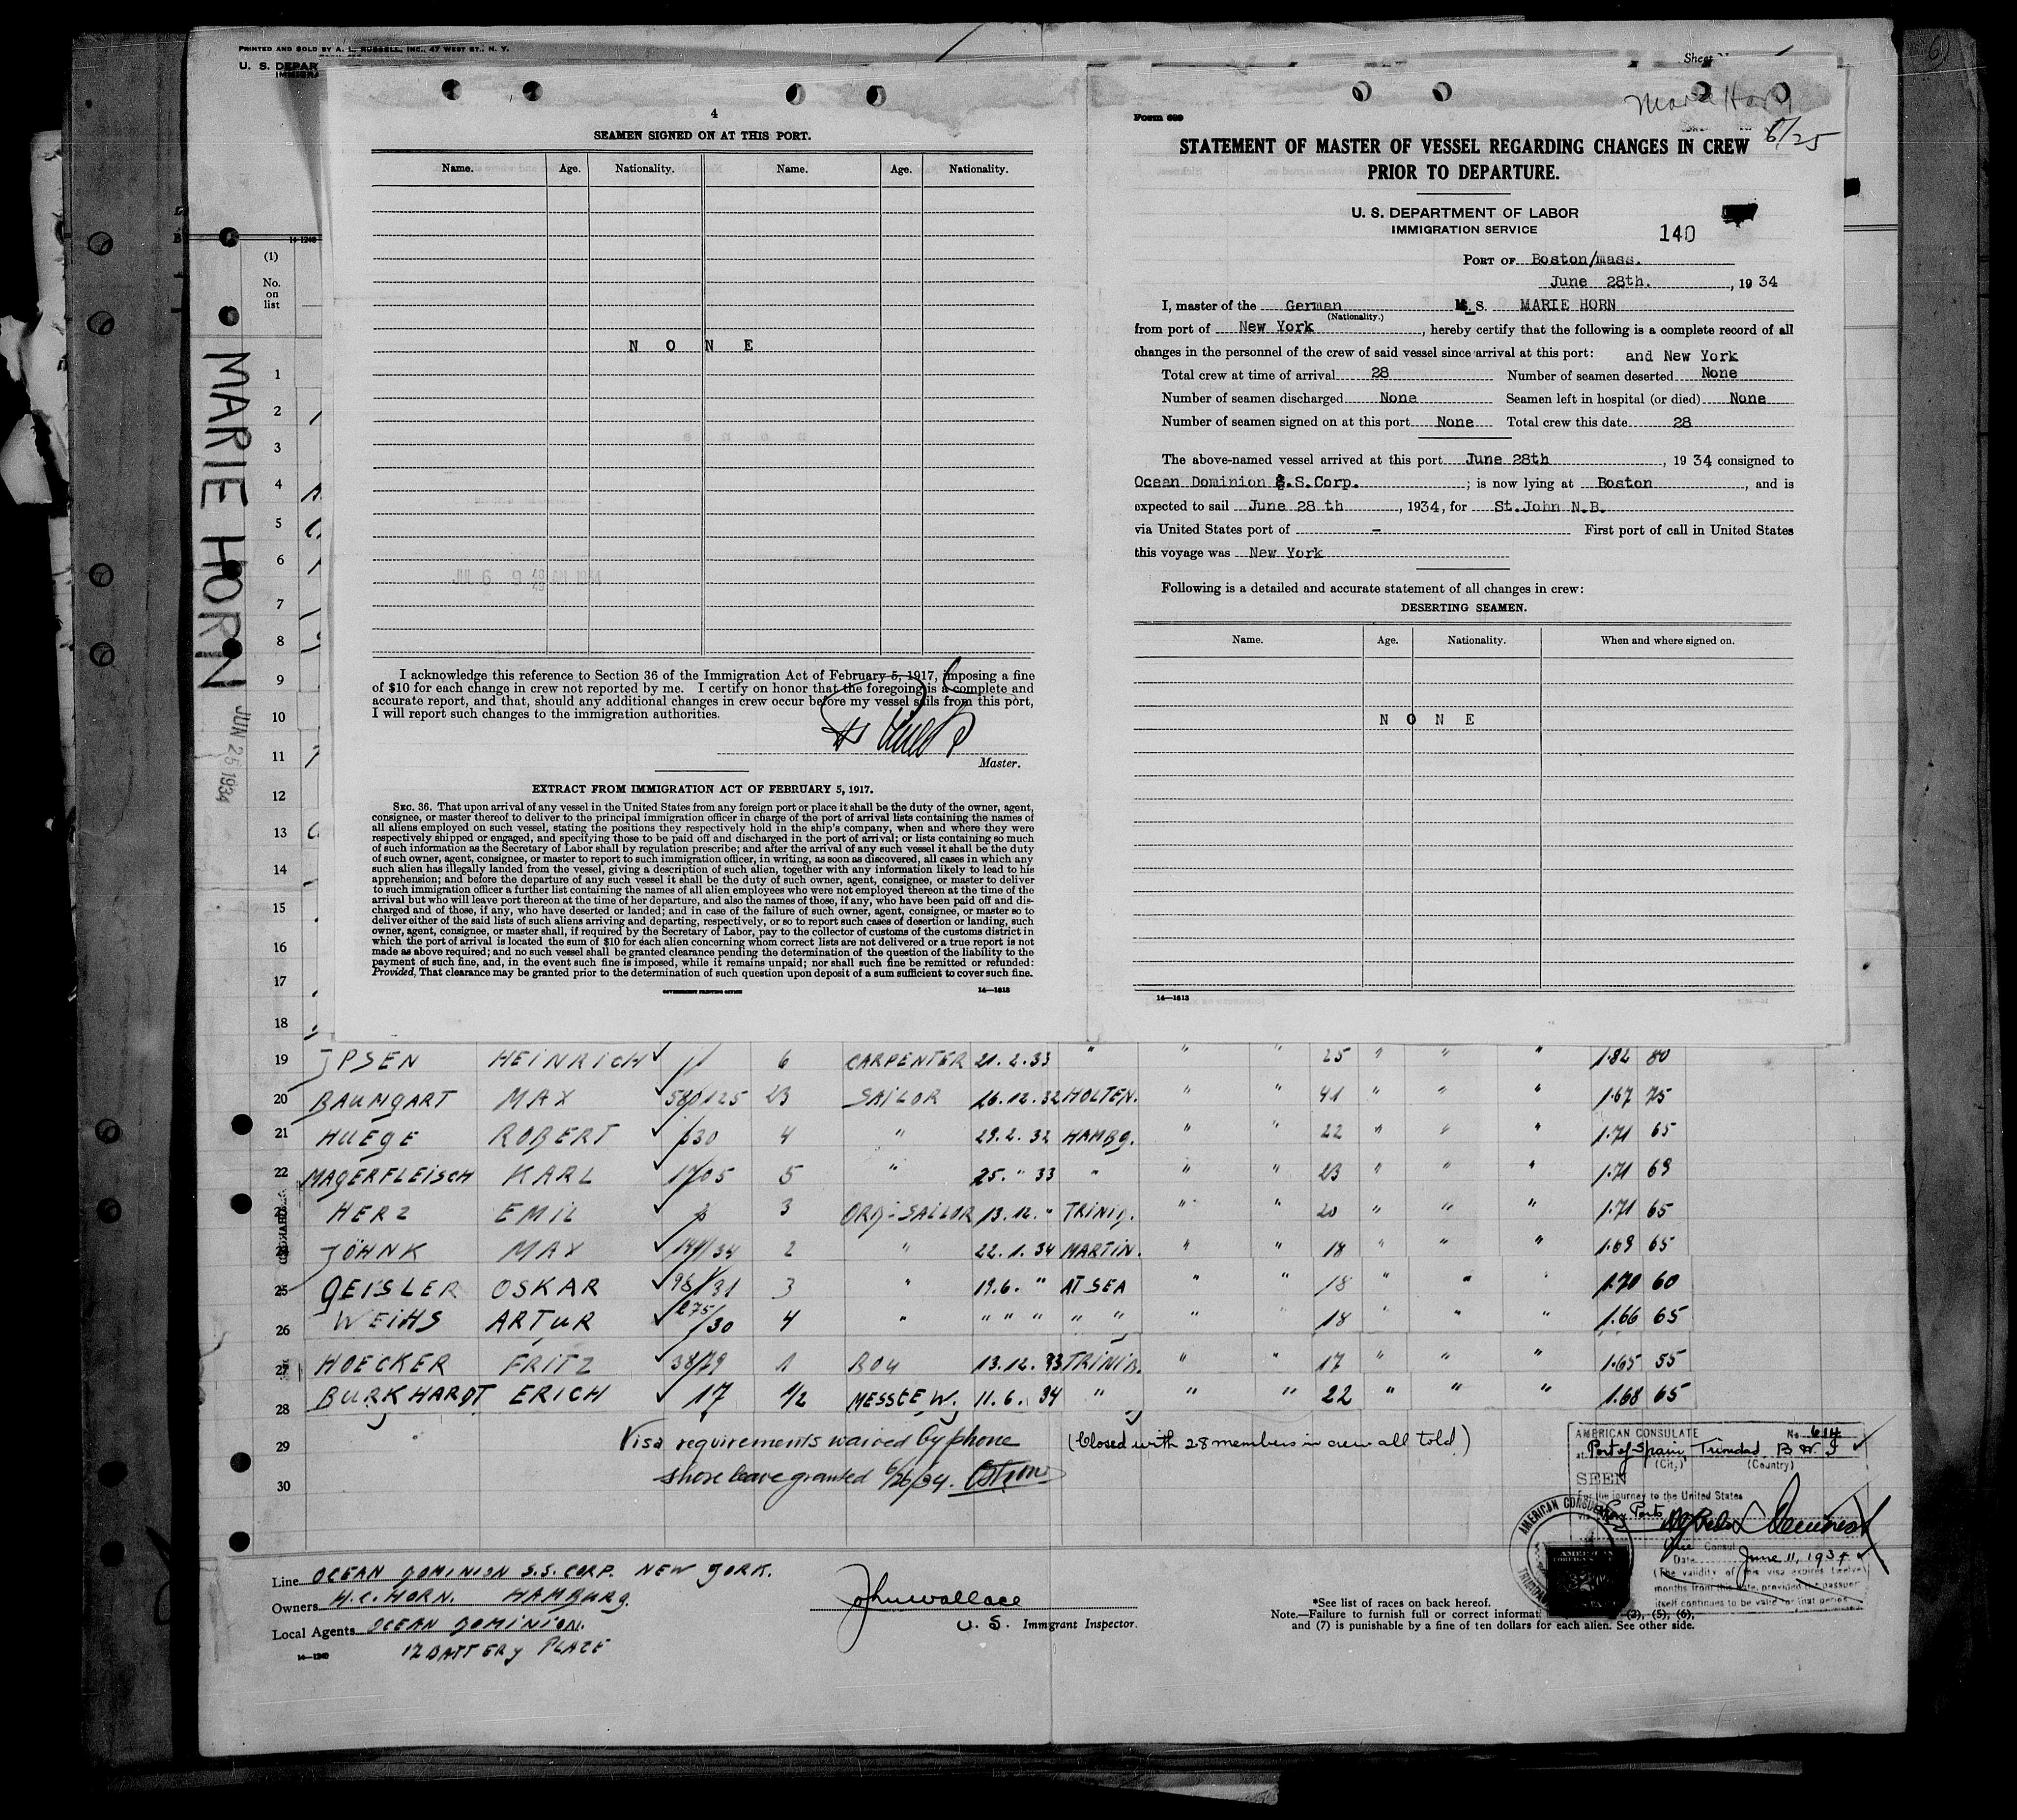 PRINTED AND SOLD BY A. L. RUSSELL, INC., 47 WEST ST., N. Y.
U. S. DEPAR
IMMIGRA
Sheet
14-1240
(1)
No.
on
list
MARIE HORN
JUN 25 1934
1
2
3
4
5
6
7
8
9
10
11
12
13
14
15
16
17
18
4
SEAMEN SIGNED ON AT THIS PORT.
Name. Age. Nationality. Name. Age. Nationality.
N O N E
I acknowledge this reference to Section 36 of the Immigration Act of February 5, 1917, imposing a fine
of $10 for each change in crew not reported by me. I certify on honor that the foregoing is a complete and
accurate report, and that, should any additional changes in crew occur before my vessel sails from this port,
I will report such changes to the immigration authorities.
Master.
EXTRACT FROM IMMIGRATION ACT OF FEBRUARY 5, 1917.
SEC. 36. That upon arrival of any vessel in the United States from any foreign port or place it shall be the duty of the owner, agent,
consignee, or master thereof to deliver to the principal immigration officer in charge of the port of arrival lists containing the names of
all aliens employed on such vessel, stating the positions they respectively hold in the ship's company, when and where they were
respectively shipped or engaged, and specifying those to be paid off and discharged in the port of arrival; or lists containing so much
of such information as the Secretary of Labor shall by regulation prescribe; and after the arrival of any such vessel it shall be the duty
of such owner, agent, consignee, or master to report to such immigration officer, in writing, as soon as discovered, all cases in which any
such alien has illegally landed from the vessel, giving a description of such alien, together with any information likely to lead to his
apprehension; and before the departure of any such vessel it shall be the duty of such owner, agent, consignee, or master to deliver
to such immigration officer a further list containing the names of all alien employees who were not employed thereon at the time of the
arrival but who will leave port thereon at the time of her departure, and also the names of those, if any, who have been paid off and dis-
charged and of those, if any, who have deserted or landed; and in case of the failure of such owner, agent, consignee, or master so to
deliver either of the said lists of such aliens arriving and departing, respectively, or so to report such cases of desertion or landing, such
owner, agent, consignee, or master shall, if required by the Secretary of Labor, pay to the collector of customs of the customs district in
which the port of arrival is located the sum of $10 for each alien concerning whom correct lists are not delivered or a true report is not
made as above required; and no such vessel shall be granted clearance pending the determination of the question of the liability to the
payment of such fine, and, in the event such fine is imposed, while it remains unpaid; nor shall such fine be remitted or refunded:
Provided, That clearance may be granted prior to the determination of such question upon deposit of a sum sufficient to cover such fine.
GOVERNMENT PRINTING OFFICE 14—1613
Marie Horn
6/25
Form 689
STATEMENT OF MASTER OF VESSEL REGARDING CHANGES IN CREW
PRIOR TO DEPARTURE.
U. S. DEPARTMENT OF LABOR
IMMIGRATION SERVICE
140
PORT OF Boston/mass.
June 28th. , 1934
I, master of the German M.S. MARIE HORN
(Nationality.)
from port of New York, hereby certify that the following is a complete record of all
changes in the personnel of the crew of said vessel since arrival at this port: and New York
Total crew at time of arrival 28 Number of seamen deserted None
Number of seamen discharged None Seamen left in hospital (or died) None
Number of seamen signed on at this port None Total crew this date 28
The above-named vessel arrived at this port June 28th , 1934 consigned to
Ocean Dominion S.S.Corp. ; is now lying at Boston , and is
expected to sail June 28 th , 1934, for St.John N.B.
via United States port of - First port of call in United States
this voyage was New York
Following is a detailed and accurate statement of all changes in crew:
DESERTING SEAMEN.
Name. Age. Nationality. When and where signed on.
N O N E
14—1613
19 JPSEN HEINRICH ✓ 6 CARPENTER 21.2.33 " " " 25 " " " 1.82 80
20 BAUMGART MAX ✓ 23 SAILOR 16.12.32 HOLTEN. " " 41 " " " 1.67 75
21 HUEGE ROBERT ✓ 4 " 29.2.32 HAMBG. " " 22 " " " 1.71 65
22 MAGERFLEISCH KARL ✓ 5 " 25. " 33 " " " 23 " " " 1.71 69
23 HERZ EMIL ✓ 3 ORD-SAILOR 13.12. " TRINID. " " 20 " " " 1.71 65
24 JÖHNK MAX ✓ 2 " 22.1.34 MARTIN. " " 18 " " " 1.69 65
25 GEISLER OSKAR ✓ 98/31 3 " 19.6. " AT SEA " " 18 " " " 1.70 60
26 WEIHS ARTUR ✓ 275/30 4 " " " " " " " " 18 " " " 1.66 65
27 HOECKER FRITZ ✓ 38/29 1 BOY 13.12.33 TRINID. " " 17 " " " 1.65 55
28 BURKHARDT ERICH ✓ 17 1/2 MESSTEW. 11.6.34 " " " 22 " " " 1.68 65
29 Visa requirements waived by phone (Closed with 28 members in crew all told)
30 shore leave granted 6/26/34.
AMERICAN CONSULATE No. 614
at Port of Spain Trinidad, B.W.I
(City) (Country)
SEEN
For the journey to the United States
Consul
Date June 11, 1934
(The validity of this visa expires twelve
months from this date, provided the passport
itself continues to be valid for that period
AMERICAN CONSULATE
Line OCEAN DOMINION S.S. CORP. NEW YORK.
Owners H.C. HORN. HAMBURG.
Local Agents OCEAN DOMINION.
17 BATTERY PLACE
14—1240
John Wallace
U. S. Immigrant Inspector.
*See list of races on back hereof.
Note.—Failure to furnish full or correct informat (2), (5), (6),
and (7) is punishable by a fine of ten dollars for each alien. See other side.